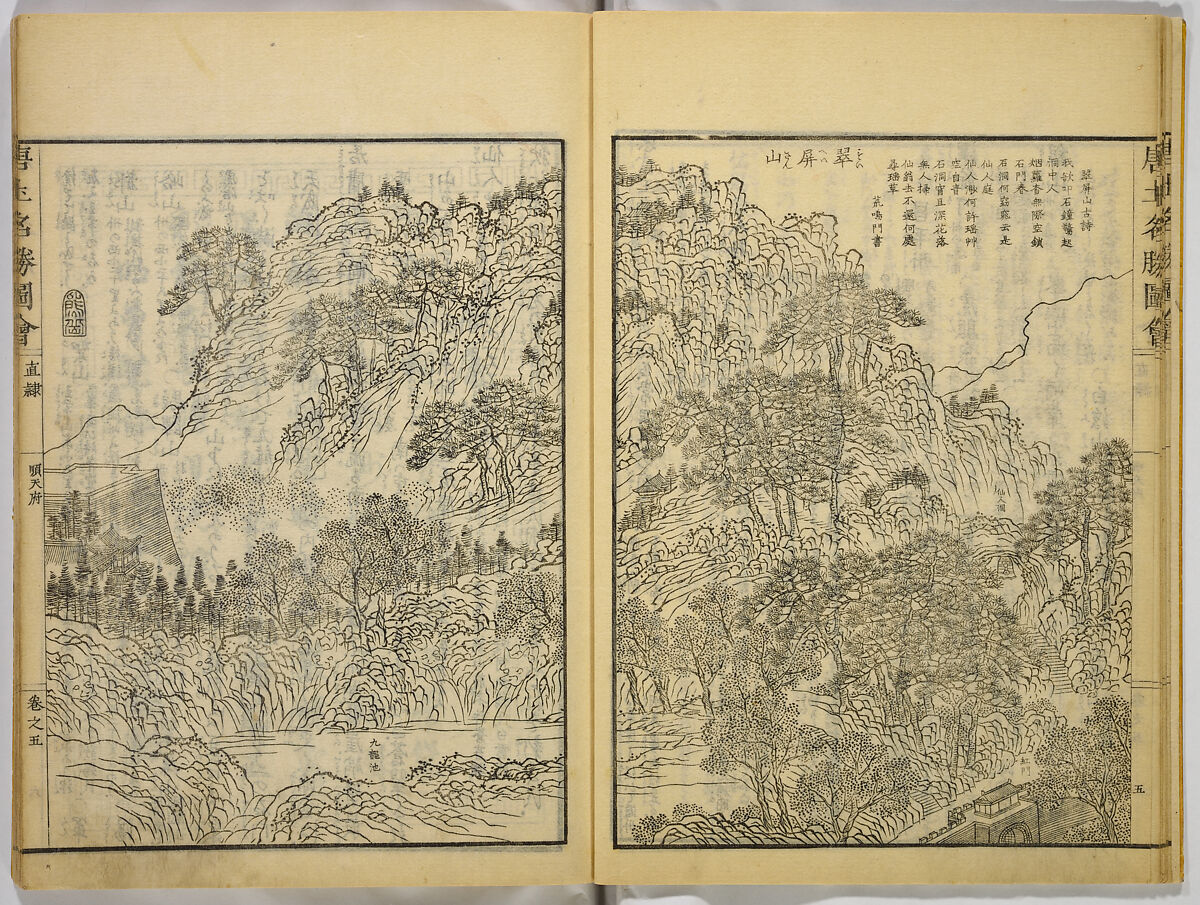 唐土名勝圖會
五
翠屏山古詩
我欲叩石鐘驚起
洞中人
烟蘿杳無際空鎖
石門春
石洞何窈窕云是
仙人庭
仙人渺何許瑶艸
空自青
石洞窅且深花落
無人掃
仙翁去不還何處
尋瑶草
荒鳴門書
翠屏山
すい
へい
さん
仙人洞
紅門
九龍池
熊岳
唐土名勝圖會
直隷
順天府
卷之五